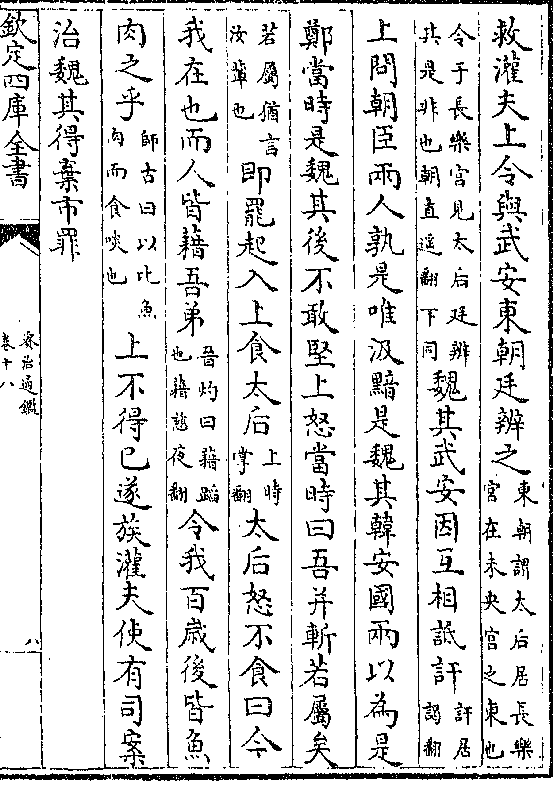 救灌夫上令與武安東朝廷辨之東朝謂太后居長樂宮在未央宮之東也
令于長樂宮見太后廷辨其是非也朝直遥翻下同魏其武安因互相詆訐訐居謁翻
上問朝臣兩人孰是唯汲黯是魏其韓安國兩以為是
鄭當時是魏其後不敢堅上怒當時曰吾并斬若屬矣
若屬猶言汝輩也即罷起入上食太后上時掌翻太后怒不食曰今
我在也而人皆藉吾弟晉灼曰藉蹈也藉慈夜翻令我百歲後皆魚
肉之乎師古曰以比魚肉而食啖也上不得已遂族灌夫使有司案
治魏其得棄市罪
欽定四庫全書
資治通鑑
卷十八
八